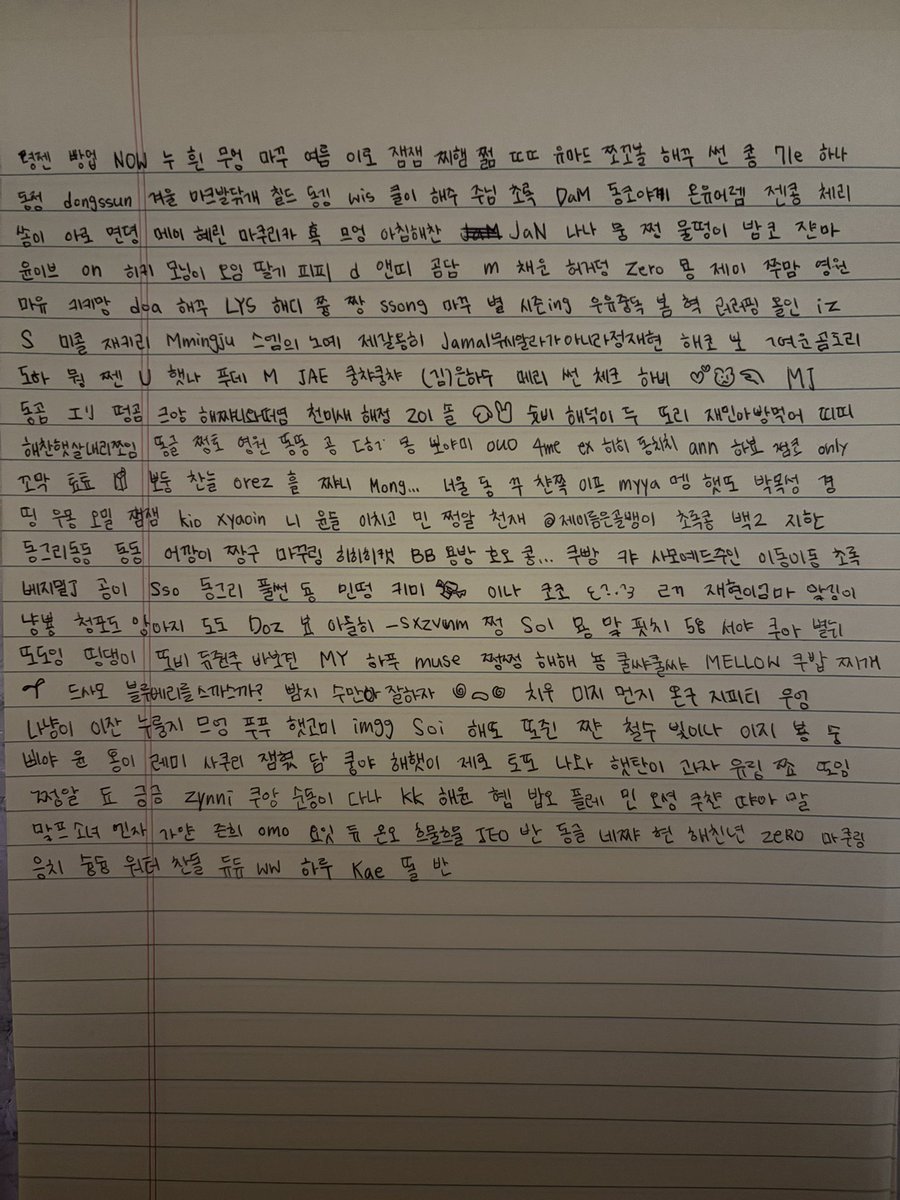 령젠 빵업 NOW 누 흰 무엉 마꾸 여름 이로 잼잼 찌햄 쩖 ㄸㄸ 유마드 쪼꼬볼 해꾸 썬 홍 기e 하나
동정 dongssun 겨울 마크발닦개 칠드 동깅 wis 쿨이 해주 주님 초록 DaM 동코야끼 온유어렘 젠콩 체리
쏭이 아로 면뎡 메이 혜린 마쿠리카 흑 므엉 아침해찬 JaN 나나 뭉 쩐 물떵이 밤코 쟌마
윤이브 on 히키 모닝이 오임 딸기 피피 d 앤띠 곰담 m 채운 허거덩 Zero 몽 제이 쭈맘 영원
마유 키키망 doa 해꾸 LYS 해디 쭝 짱 ssong 마꾸 별 시준ing 우유중독 봄 혁 러러핑 몰인 iz
S 미쫄 재키리 Mmingju 스낌의 노예 제갈용히 Jamal무시깔라가아니라정재현 해초 보 ㄱ여운곰도리
도하 뭠 쩬 U 햇나 푸데 M JAE 쿵챠쿵챠 (김)은하수 메리 썬 체크 하비 MJ
동곰 エリ 떵곰 크앙 해쨔니와떠염 천미새 해정 201 똘 숯비 해덕이 두 또리 재민아밥먹어 띠띠
해찬햇살내리쪼임 똥글 쩡토 영원 똥똥 공 동 보야미 ouo 4me ex 히히 동치치 ann 하뵤 쩜코 only
꼬막 툐툐 보둥 찬늘 orez 흘 쨔니 Mong... 너울 동 꾸 챤쪽 이프 myya 멩 햇또 박목성 경
띵 우몽 오밀 잼잼 kio xyaoin 니 윤들 이치고 민 쩡알 천재 @제이름은골뱅이 초록콩 백2 지한
동그리동동 동동 어깡이 짱구 마꾸링 히히히캣 BB 용방 호오 쿵... 쿠빵 캬 사모예드주인 이동이동 초록
베지밀J 공이 Sso 동그리 풀썬 동 민떵 키미 이나 코코 ε?.?3 ㄹㄲ 재현이엄마 알깅이
냥뽕 청포도 앙아지 도도 Doz 뵤 아들히 -sxzvnm 쩡 Sol 용 말 핏치 58 서야 쿠아 별뒤
또도잉 띵댕이 또비 듀쥔쿠 바보틴 MY 하푸 muse 쩡쩡 해해 뇽 쿨쌰쿨쌰 MELLOW 쿠밥 찌개
드사모 블루베리를스까스까? 밤지 수만아 잘하자 치우 미지 먼지 온구 지피티 무엉
냐냥이 이잔 누룽지 므엉 푹푸 햇꼬미 imgg Soi 해또 또쥔 쨘 철수 빛이나 이지 봉 둥
삐야 윤 통이 레미 사쿠리 잼휫 담 쿵야 해햇이 제로 토또 나와 햇탄이 과자 유링 쬬 또임
쩡알 됴 긍긍 zynni 쿠앙 순동이 다나 KK 해윤 헵 밥오 플레 민 오셩 쿠챤 땨아 말
말프소녀 엔자 가얀 준희 omo 요잇 듀 온오 흐물흐물 JEO 반 동글 네쨔 현 해친년 ZERO 마쿠링
응치 숭둥 워터 찬들 듀듀 ww 하루 Kae 뚈 반